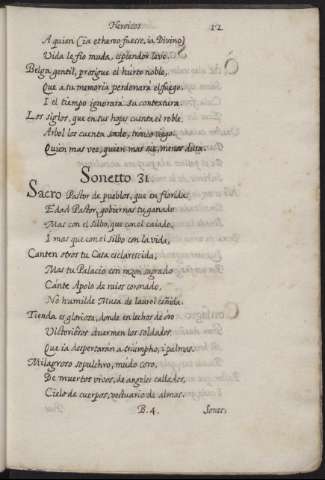 Heroicos 12
A quien (ia etherno fuesse, ia Divino)
Vida le fio muda, esplendor leve.
Belga gentil, prosigue el hurto noble,
Que a tu memoria perdonarà el fuego,
I el tiempo ignorarà su contextura.
Los siglos, que en sus hojas cuenta el roble,
Arbol los cuenta sordo, tronco ciego.
Quien mas vee, quien mas oie, menos dura.
Sonetto 31.
Sacro Pastor de pueblos, que en florida
Edad Pastor, gobiernas tu ganado
Mas con el silbo, que con el caiado,
I mas que con el silbo con la vida,
Canten otros tu Casa esclarecida,
Mas tu Palacio con razon sagrado
Cante Apolo de raios coronado,
No humilde Musa de laurel ceñida.
Tienda es gloriosa, donde en lechos de oro
Victoriosos duermen los soldados,
Que ia despertaràn a triumpho, i palmas.
Milagroso sepulchro, mudo coro,
De muertos vivos, de angeles callados,
Cielo de cuerpos, vestuario de almas.
B.4. Sonet.